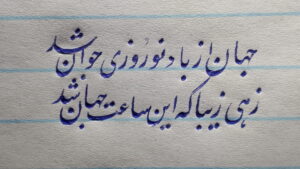 جهان از باد نوروزی جوان شد
زهی زیبا که این ساعت جهان شد